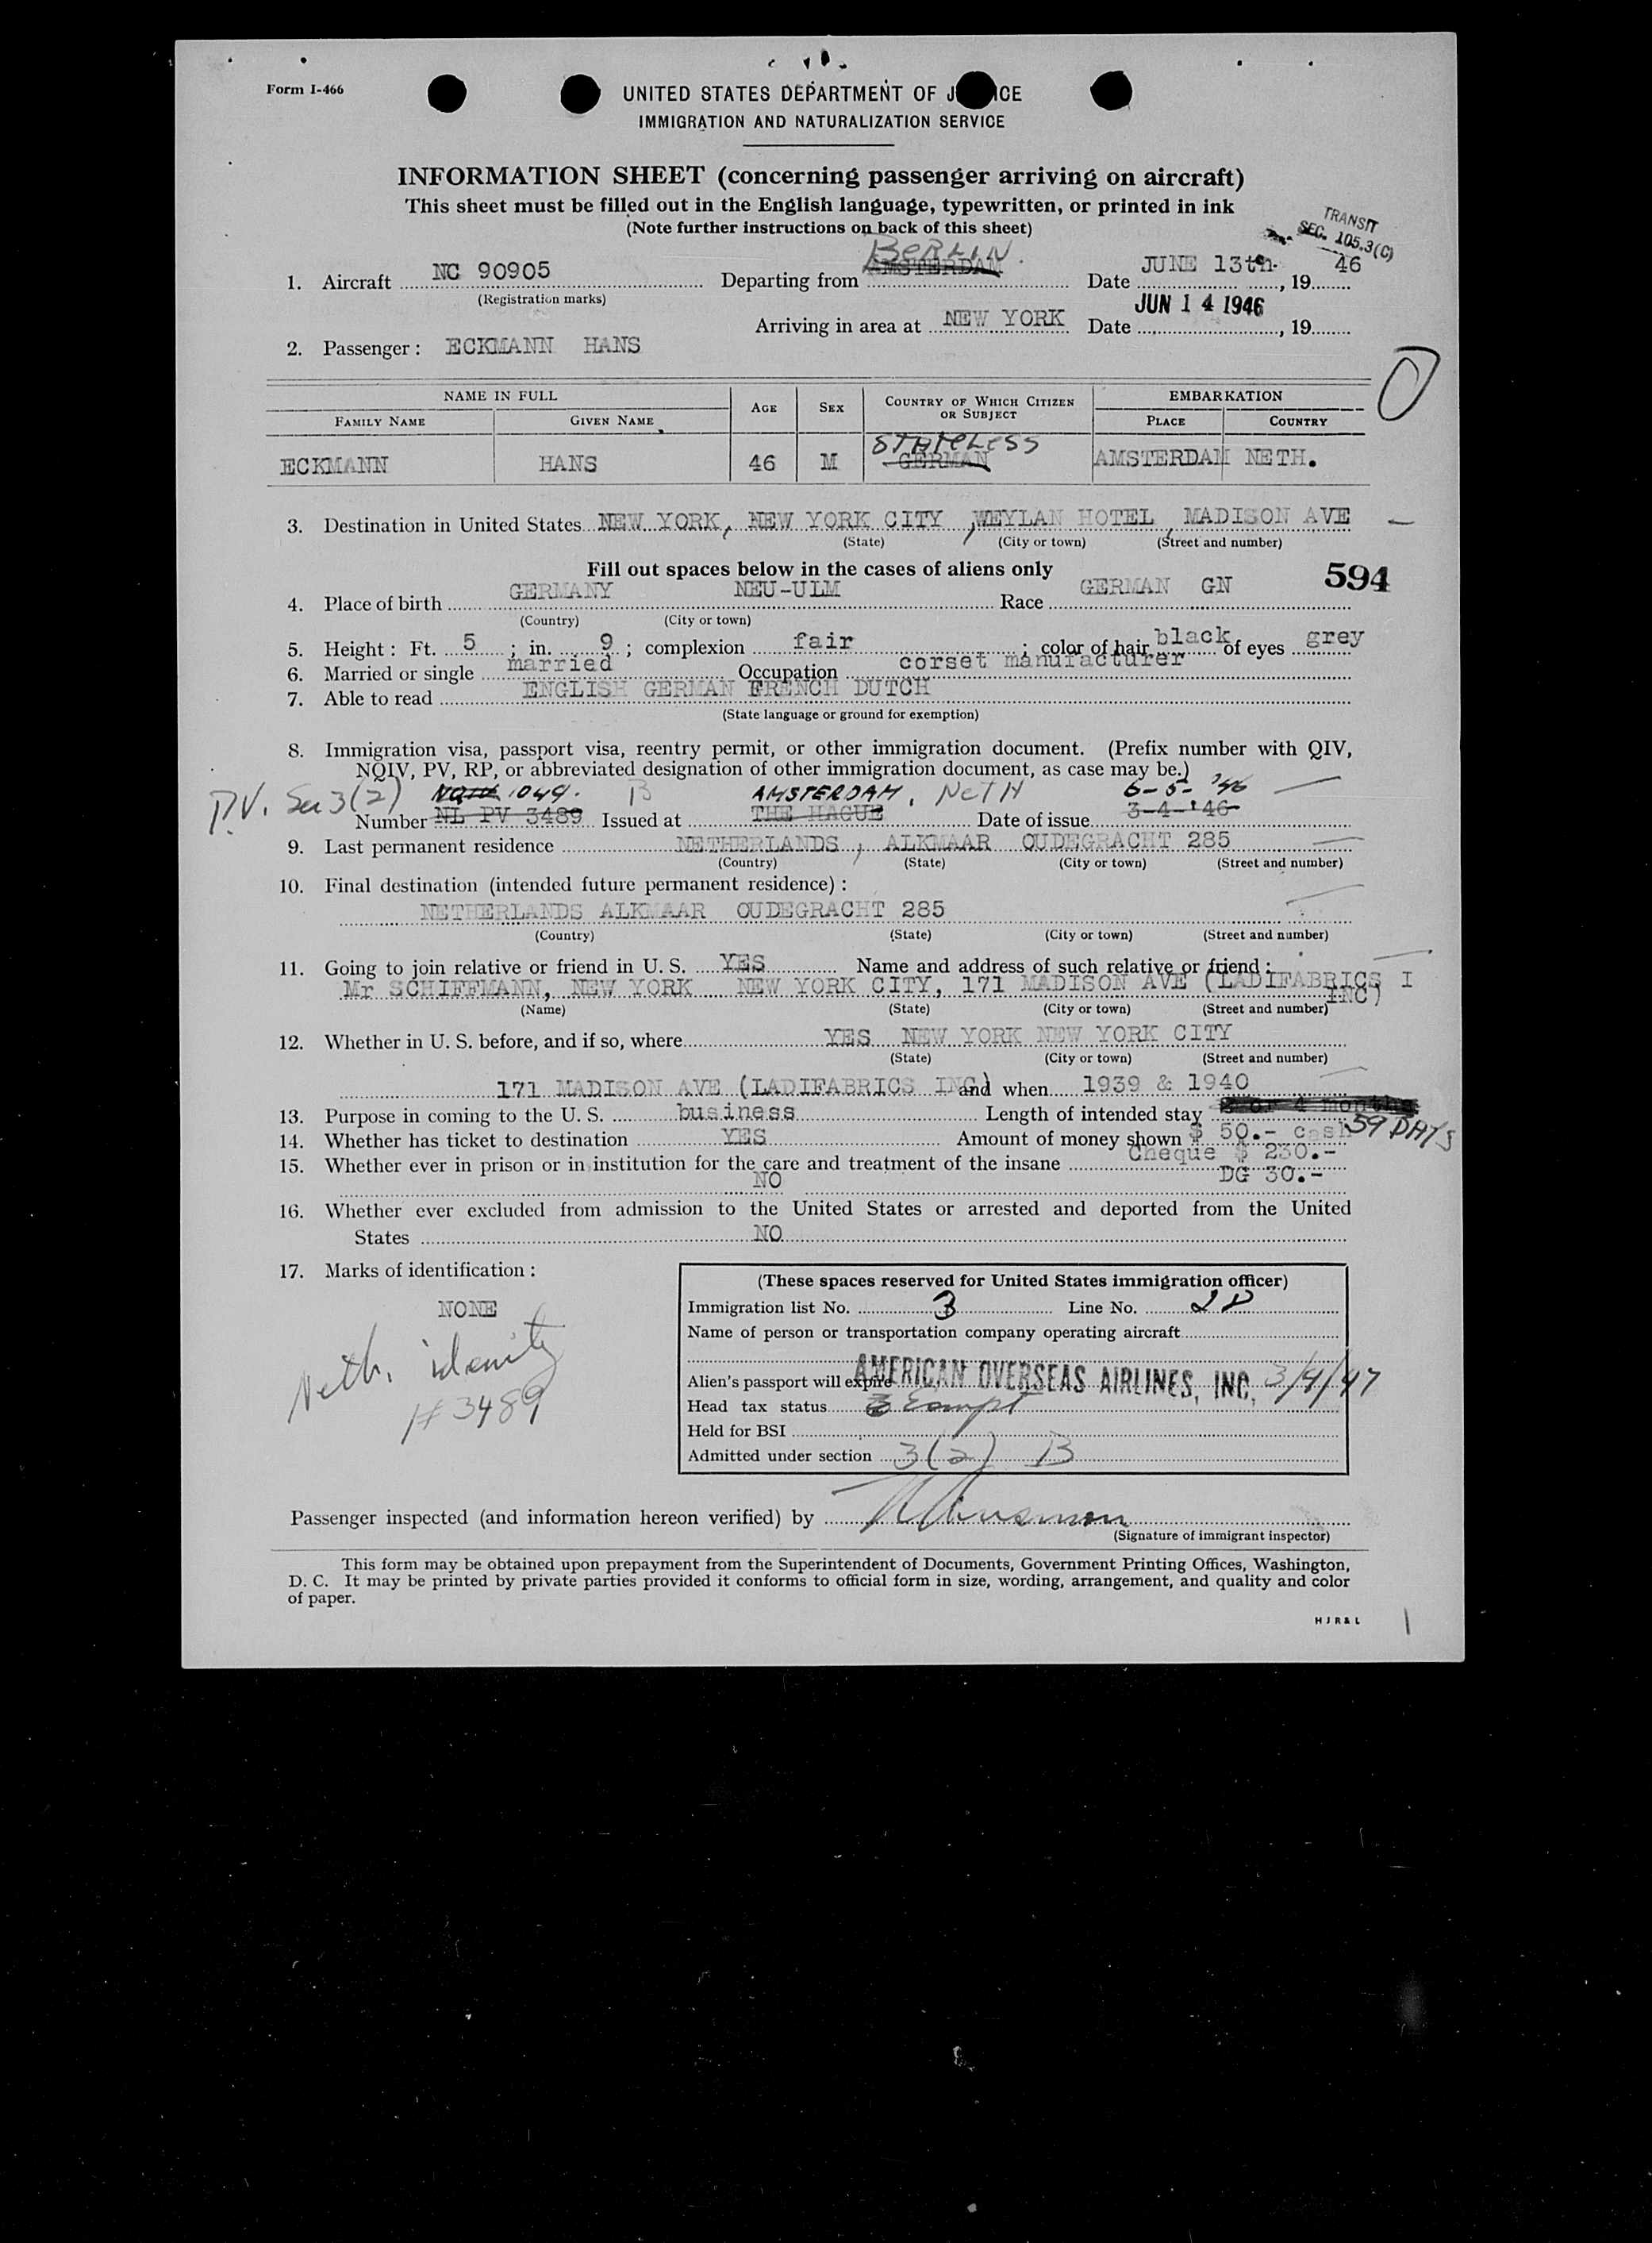 Form I-466
UNITED STATES DEPARTMENT OF J ICE
IMMIGRATION AND NATURALIZATION SERVICE
INFORMATION SHEET (concerning passenger arriving on aircraft)
This sheet must be filled out in the English language, typewritten, or printed in ink
(Note further instructions on back of this sheet)
TRANSIT
SEC. 105.3(C)
BERLIN.
1. Aircraft NC 90905 Departing from AMSTERDAM Date JUNE 13th. , 19 46
(Registration marks)
JUN 14 1946
Arriving in area at NEW YORK Date , 19
2. Passenger: ECKMANN HANS
NAME IN FULL AGE SEX COUNTRY OF WHICH CITIZEN OR SUBJECT EMBARKATION
FAMILY NAME GIVEN NAME PLACE COUNTRY
STATELESS
ECKMANN HANS 46 M GERMAN AMSTERDAM NETH.
3. Destination in United States NEW YORK, NEW YORK CITY , WEYLAN HOTEL , MADISON AVE
(State) (City or town) (Street and number)
Fill out spaces below in the cases of aliens only
594
4. Place of birth GERMANY NEU-ULM Race GERMAN GN
(Country) (City or town)
5. Height: Ft. 5 ; in. 9 ; complexion fair ; color of hair black of eyes grey
6. Married or single married Occupation corset manufacturer
7. Able to read ENGLISH GERMAN FRENCH DUTCH
(State language or ground for exemption)
8. Immigration visa, passport visa, reentry permit, or other immigration document. (Prefix number with QIV,
NQIV, PV, RP, or abbreviated designation of other immigration document, as case may be.)
P.V. Sec 3(2) 1049. B AMSTERDAM, NETH 6-5-'46
Number NL PV 3489 Issued at THE HAGUE Date of issue 3-4-'46
9. Last permanent residence NETHERLANDS , ALKMAAR OUDEGRACHT 285
(Country) (State) (City or town) (Street and number)
10. Final destination (intended future permanent residence):
NETHERLANDS ALKMAAR OUDEGRACHT 285
(Country) (State) (City or town) (Street and number)
11. Going to join relative or friend in U. S. YES Name and address of such relative or friend:
Mr SCHIFFMANN, NEW YORK NEW YORK CITY, 171 MADISON AVE (LADIFABRICS I
INC)
(Name) (State) (City or town) (Street and number)
12. Whether in U. S. before, and if so, where YES NEW YORK NEW YORK CITY
(State) (City or town) (Street and number)
171 MADISON AVE (LADIFABRICS INC) and when 1939 & 1940
13. Purpose in coming to the U. S. business Length of intended stay 3 or 4 months
59 DAYS
14. Whether has ticket to destination YES Amount of money shown $ 50.- cash
Cheque $ 230.-
15. Whether ever in prison or in institution for the care and treatment of the insane
NO DG 30.-
16. Whether ever excluded from admission to the United States or arrested and deported from the United
States NO
17. Marks of identification:
NONE
Neth. idenity
# 3489
(These spaces reserved for United States immigration officer)
Immigration list No. 3 Line No. 28
Name of person or transportation company operating aircraft
AMERICAN OVERSEAS AIRLINES, INC.
Alien's passport will expire 3/4/47
Head tax status Exempt
Held for BSI
Admitted under section 3(2) B
Passenger inspected (and information hereon verified) by
(Signature of immigrant inspector)
This form may be obtained upon prepayment from the Superintendent of Documents, Government Printing Offices, Washington,
D. C. It may be printed by private parties provided it conforms to official form in size, wording, arrangement, and quality and color
of paper.
H J R & L